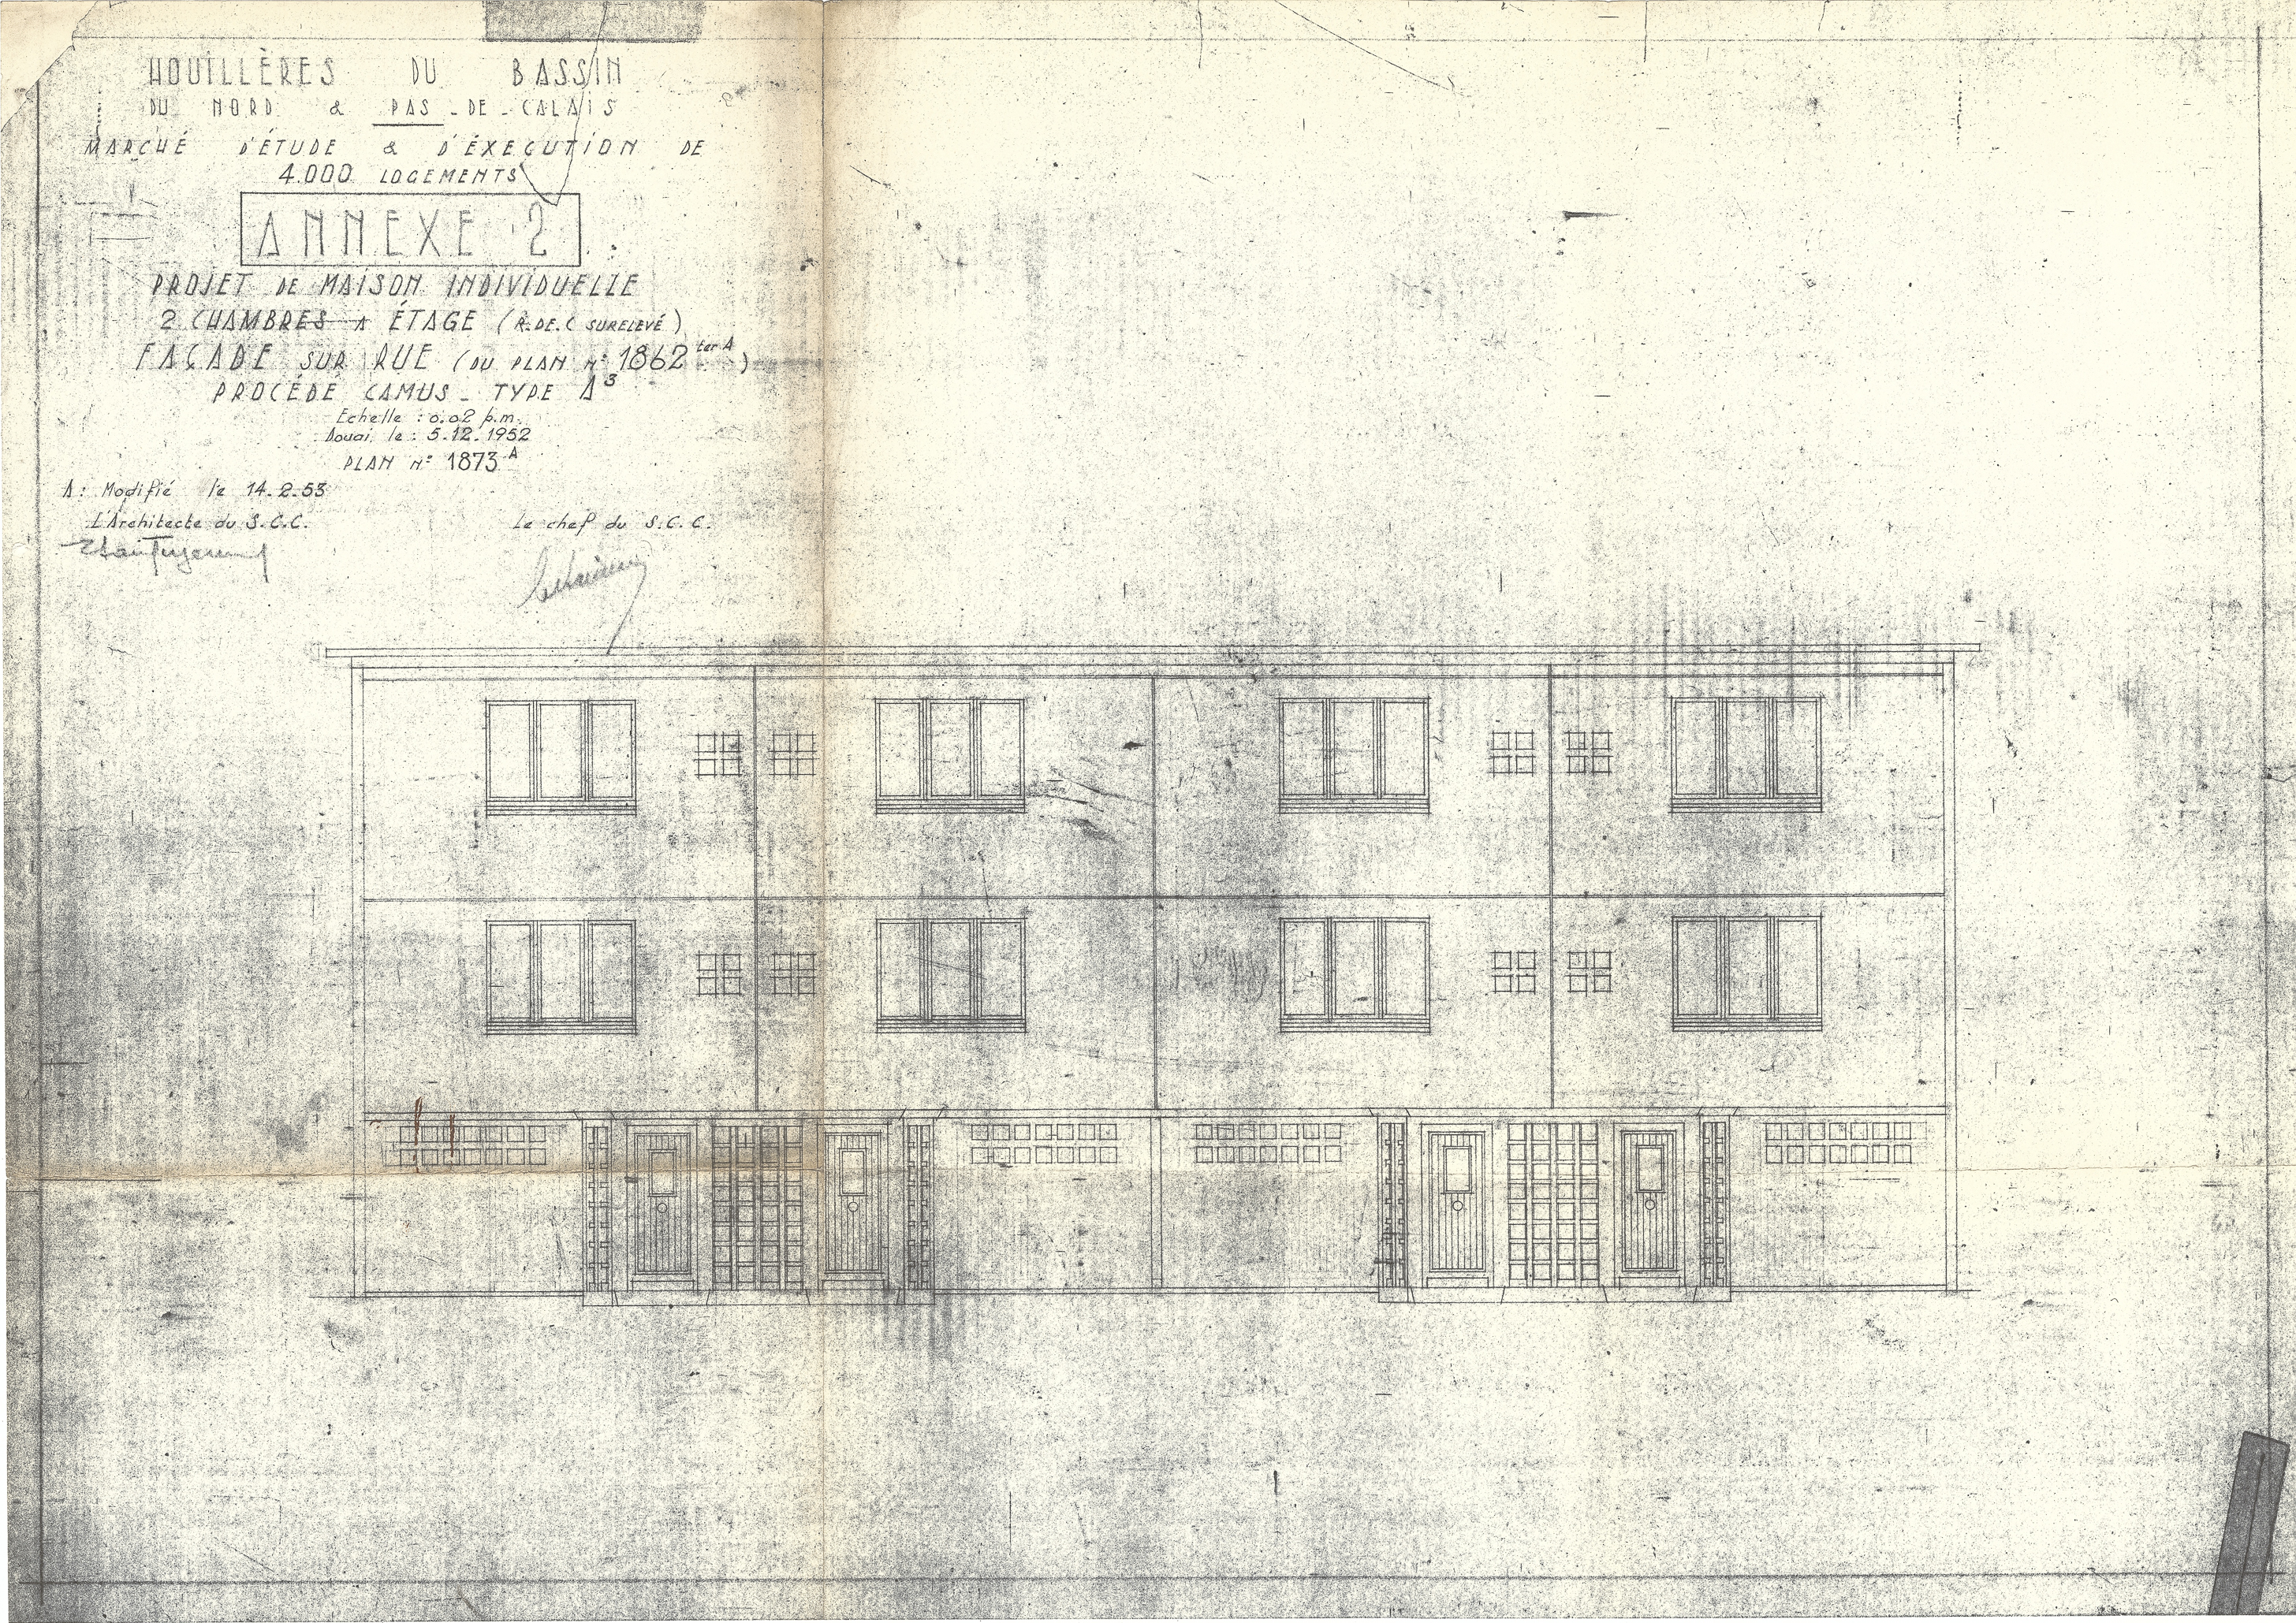 HOUILLÈRES DU BASSIN
DU NORD & PAS-DE-CALAIS
MARCHÉ D'ÉTUDE & D'ÉXECUTION DE
4.000 LOGEMENTS
ANNEXE 2
PROJET DE MAISON INDIVIDUELLE
2 CHAMBRES A ÉTAGE (R.DE.C SURELEVÉ)
FAÇADE SUR RUE (DU PLAN N° 1862 ter A)
PROCÉDÉ CAMUS - TYPE A3
Echelle : 0.02 p.m.
Douai le : 5.12.1952
PLAN N° 1873 A
A : Modifié le 14.2.53
L'Architecte du S.C.C.
Le chef du S.C.C.